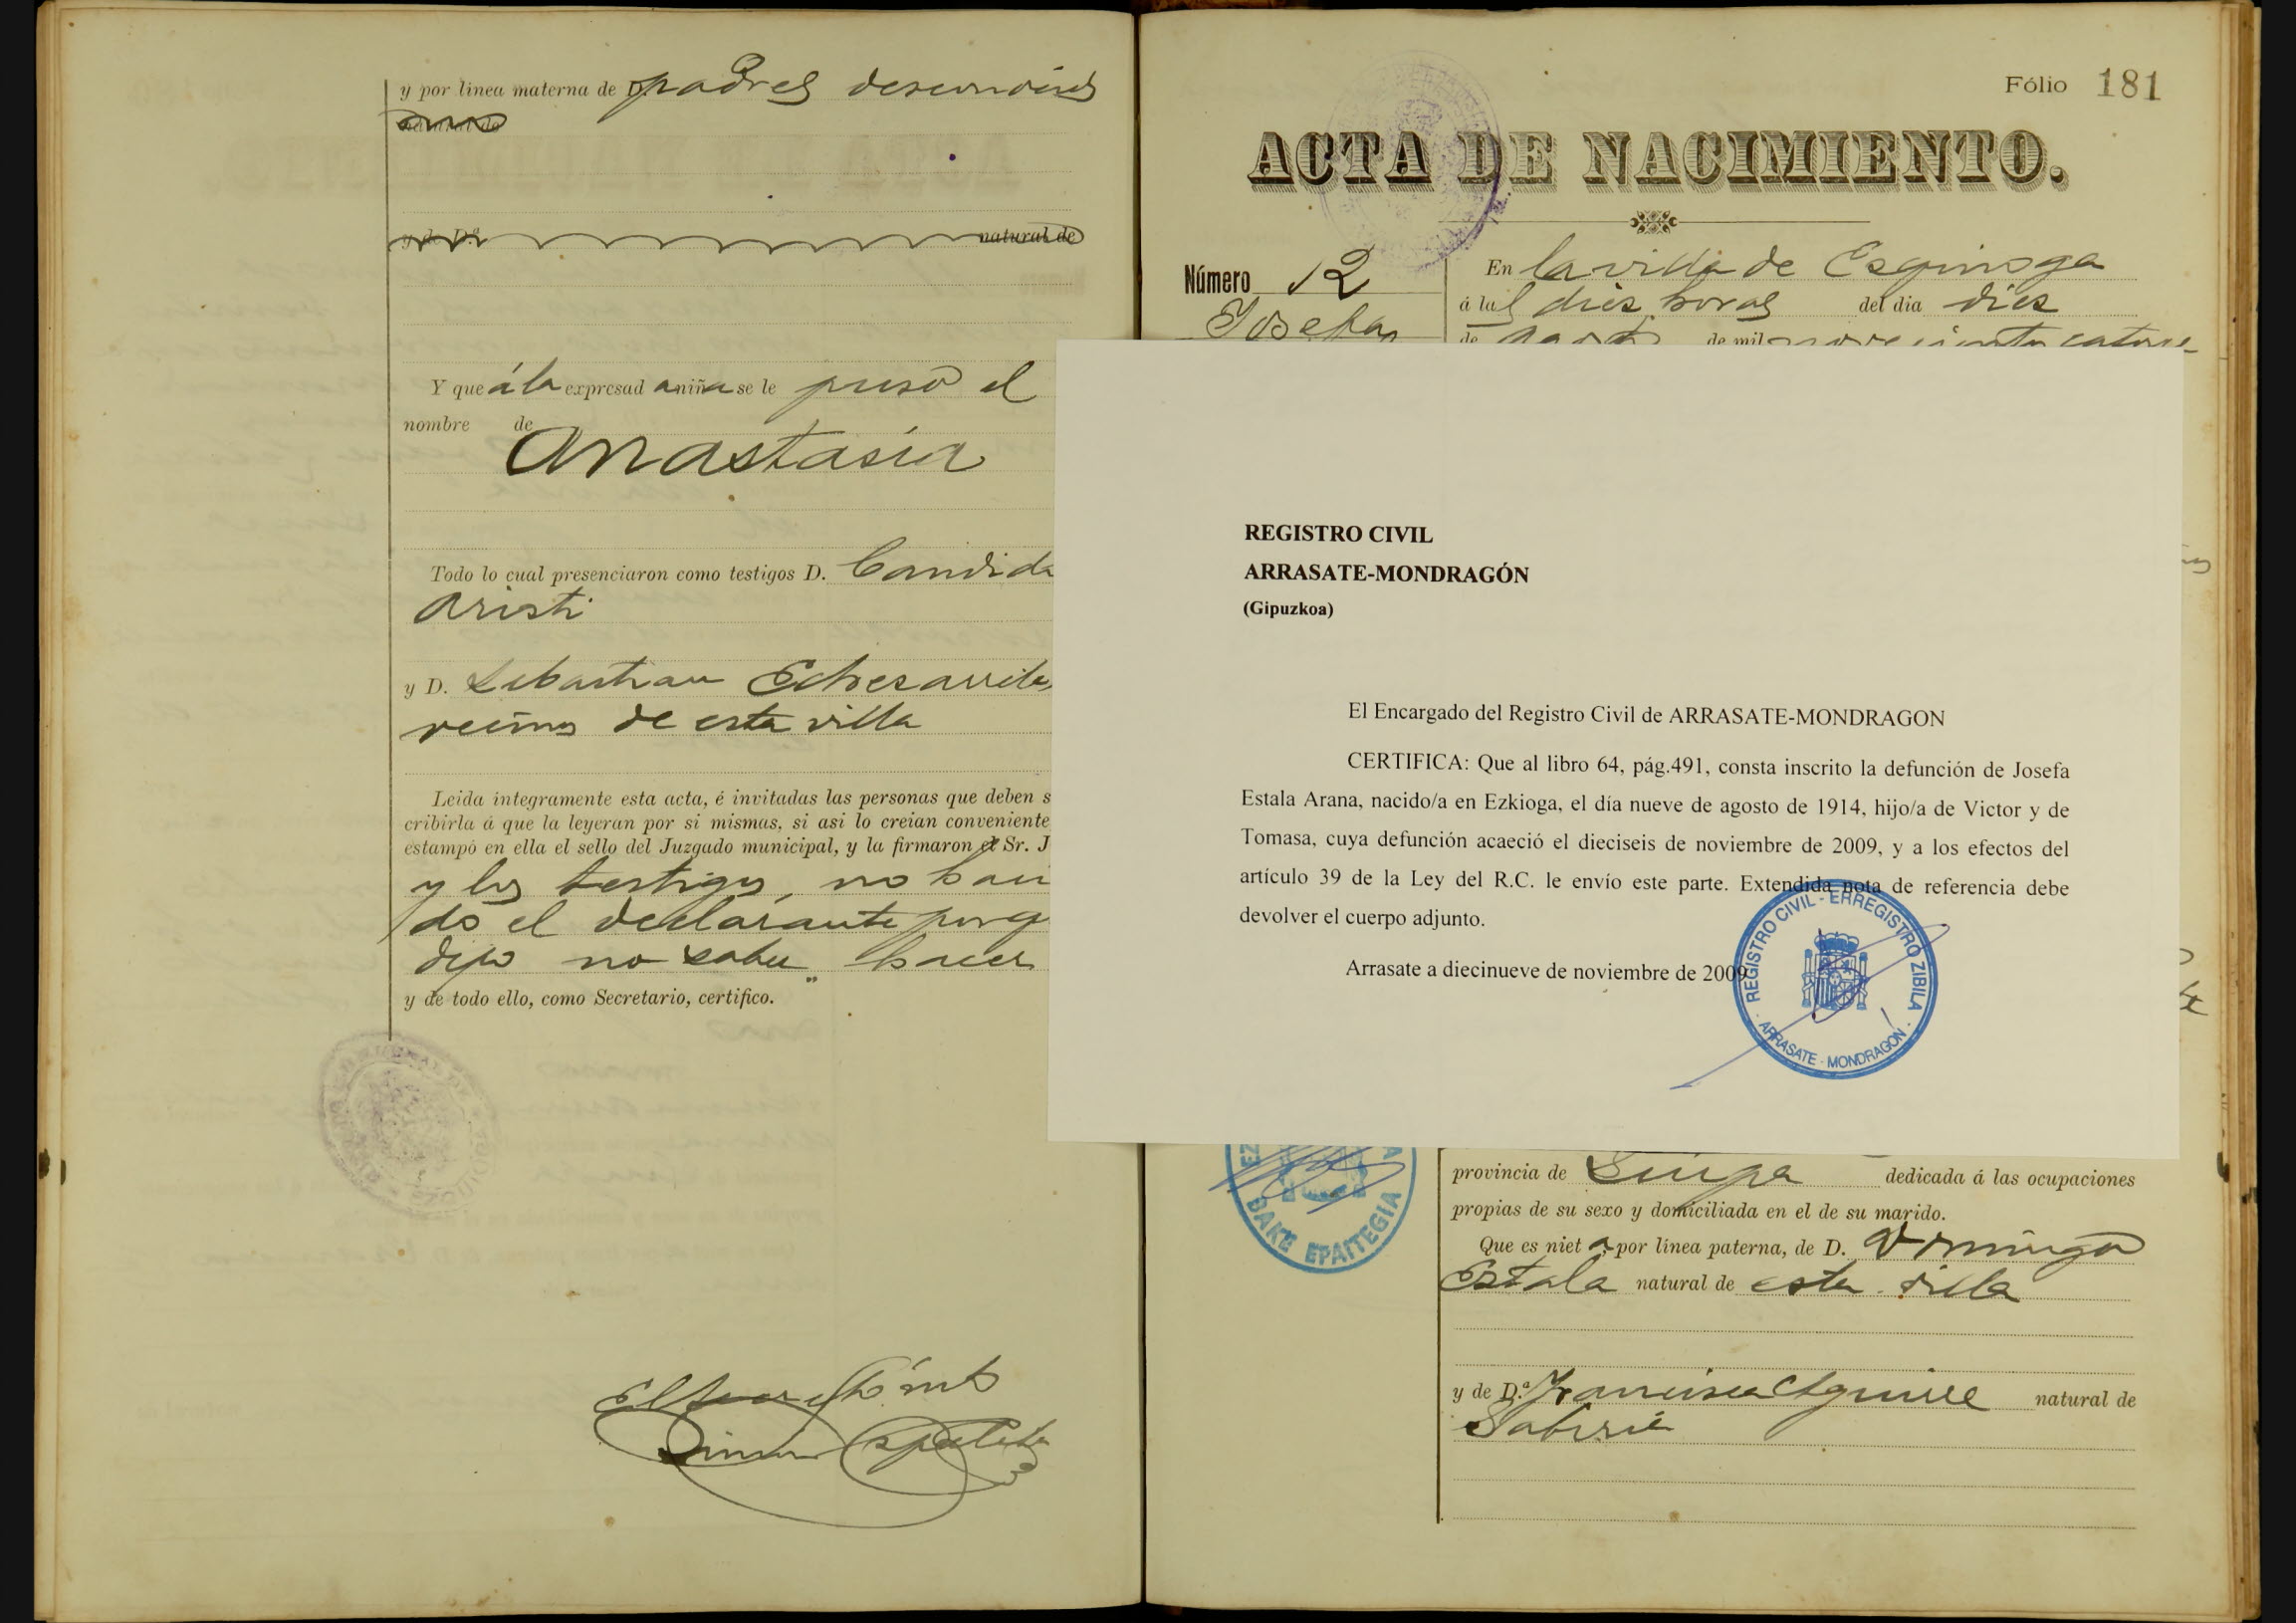 y por línea materna de D. padres desconocidos
natural de
y de D.ª natural de
Y que á la expresad a niña se le puso el
nombre de
Anastasia
Todo lo cual presenciaron como testigos D. Candido
Aristi
y D. Sebastian Echezarreta,
vecinos de esta villa
Leida íntegramente esta acta, é invitadas las personas que deben s
cribirla á que la leyeran por si mismas, si asi lo creian conveniente
estampó en ella el sello del Juzgado municipal, y la firmaron el Sr. J
y los testigos, no hacien
do el declarante porq
dijo no saber hacer
y de todo ello, como Secretario, certifico.
Fólio 181
ACTA DE NACIMIENTO.
Número 12
Josefa
En la villa de Ezquioga
á las diez horas del dia diez
de Agosto de mil novecientos catorce
REGISTRO CIVIL
ARRASATE-MONDRAGÓN
(Gipuzkoa)
El Encargado del Registro Civil de ARRASATE-MONDRAGON
CERTIFICA: Que al libro 64, pág.491, consta inscrito la defunción de Josefa
Estala Arana, nacido/a en Ezkioga, el día nueve de agosto de 1914, hijo/a de Victor y de
Tomasa, cuya defunción acaeció el dieciseis de noviembre de 2009, y a los efectos del
artículo 39 de la Ley del R.C. le envío este parte. Extendida nota de referencia debe
devolver el cuerpo adjunto.
Arrasate a diecinueve de noviembre de 2009
REGISTRO CIVIL - ERREGISTRO ZIBILA
ARRASATE - MONDRAGÓN
BAKE EPAITEGIA
provincia de Guipa dedicada á las ocupaciones
propias de su sexo y domiciliada en el de su marido.
Que es niet a por línea paterna, de D. Domingo
Estala natural de esta villa
y de D.ª Francisca Aguirre natural de
Gabiria